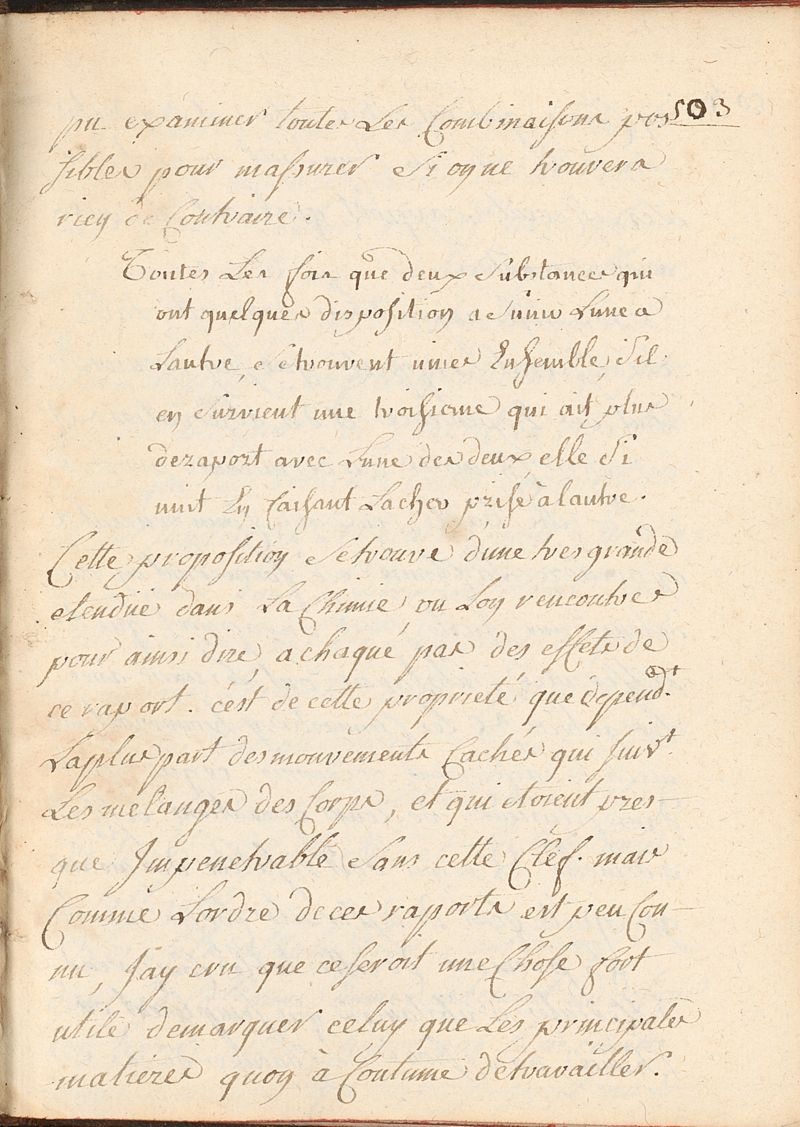 503
pu examiner toutes Les Combinaisons pos
sibles pour m'assurer Si on ne trouvera
rien de Contraire.
Toutes Les fois que deux Substances qui
ont quelques disposition a Sunir Lune a
Lautre, Setrouvent unies Ensemble, Sil
en Survient une troisieme qui ait plus
deraport avec Lune des deux, elle Si
unit En faisant Lacher prise à lautre.
Cette proposition Setrouve d'une tres grande
etendue dans La Chimie, ou Lon rencontres
pour ainsi dire, a chaqué pas des effets de
ce raport. c'est de cette proprieté que depend.t
Laplus part des mouvements Cachés qui suiv.t
Les mélanges des Corps, et qui etoient pres-
que Impenetrable Sans cette Clef. mais
Comme Lordre de ces raports est peu Con-
nu, Jay cru que ceseroit une Chose fort
utile demarquer celuy que Les principales
matieres quon à Coutume detravailler.